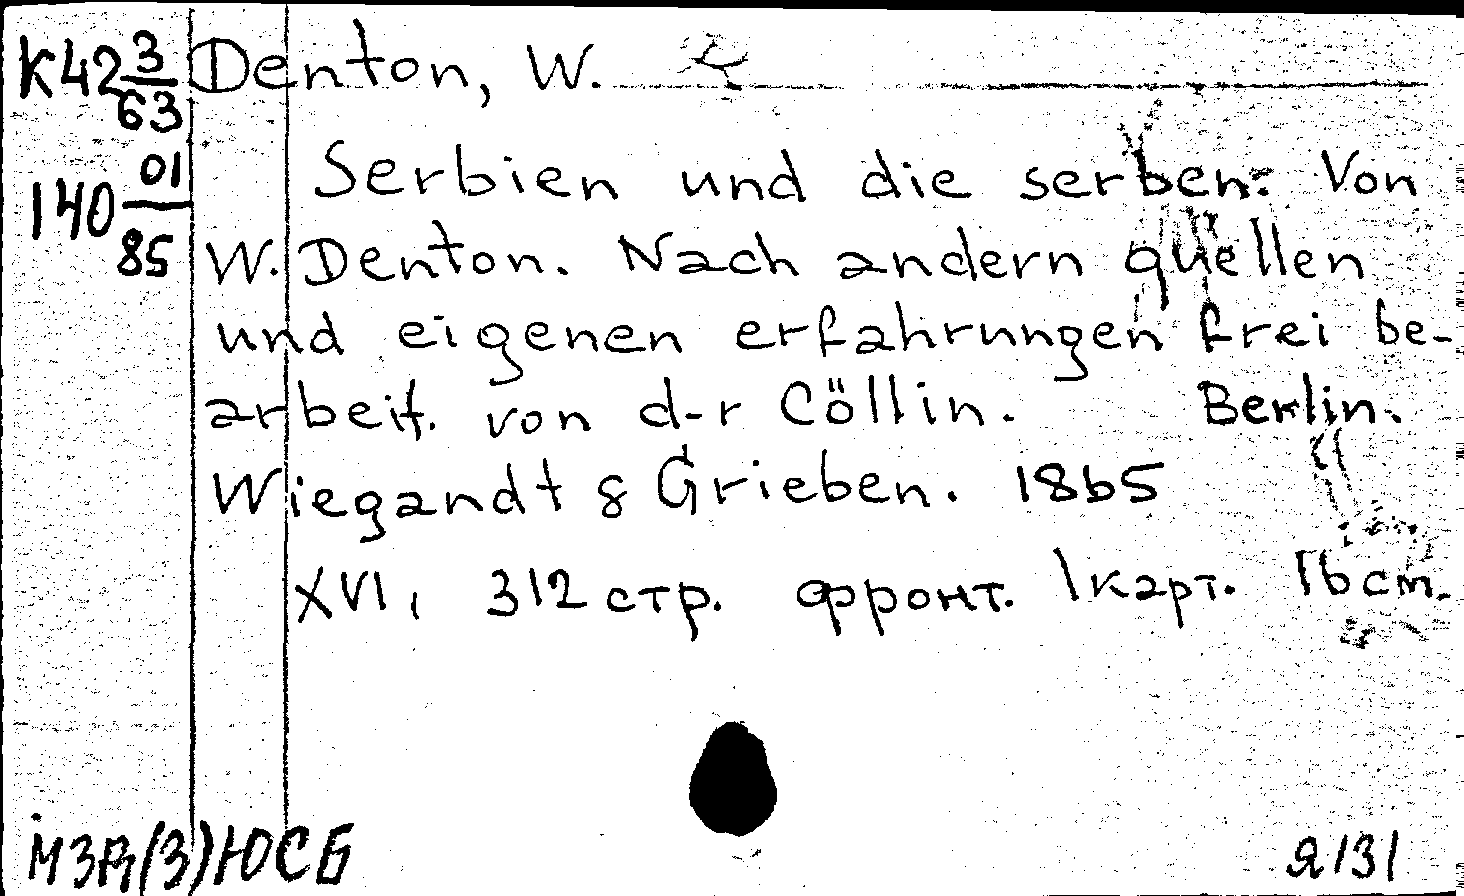 К42 3/63 Denton, W.
140 01/85
Serbien und die serben. Von
W. Denton. Nach andern quellen
und eigenen erfahrungen frei be-
arbeit. von d-r Cöllin. Berlin.
Wiegandt & Grieben. 1865
XVI, 312 стр. фронт. 1 карт. 16 cm.
МЗВ(3)ЮСБ
Я131